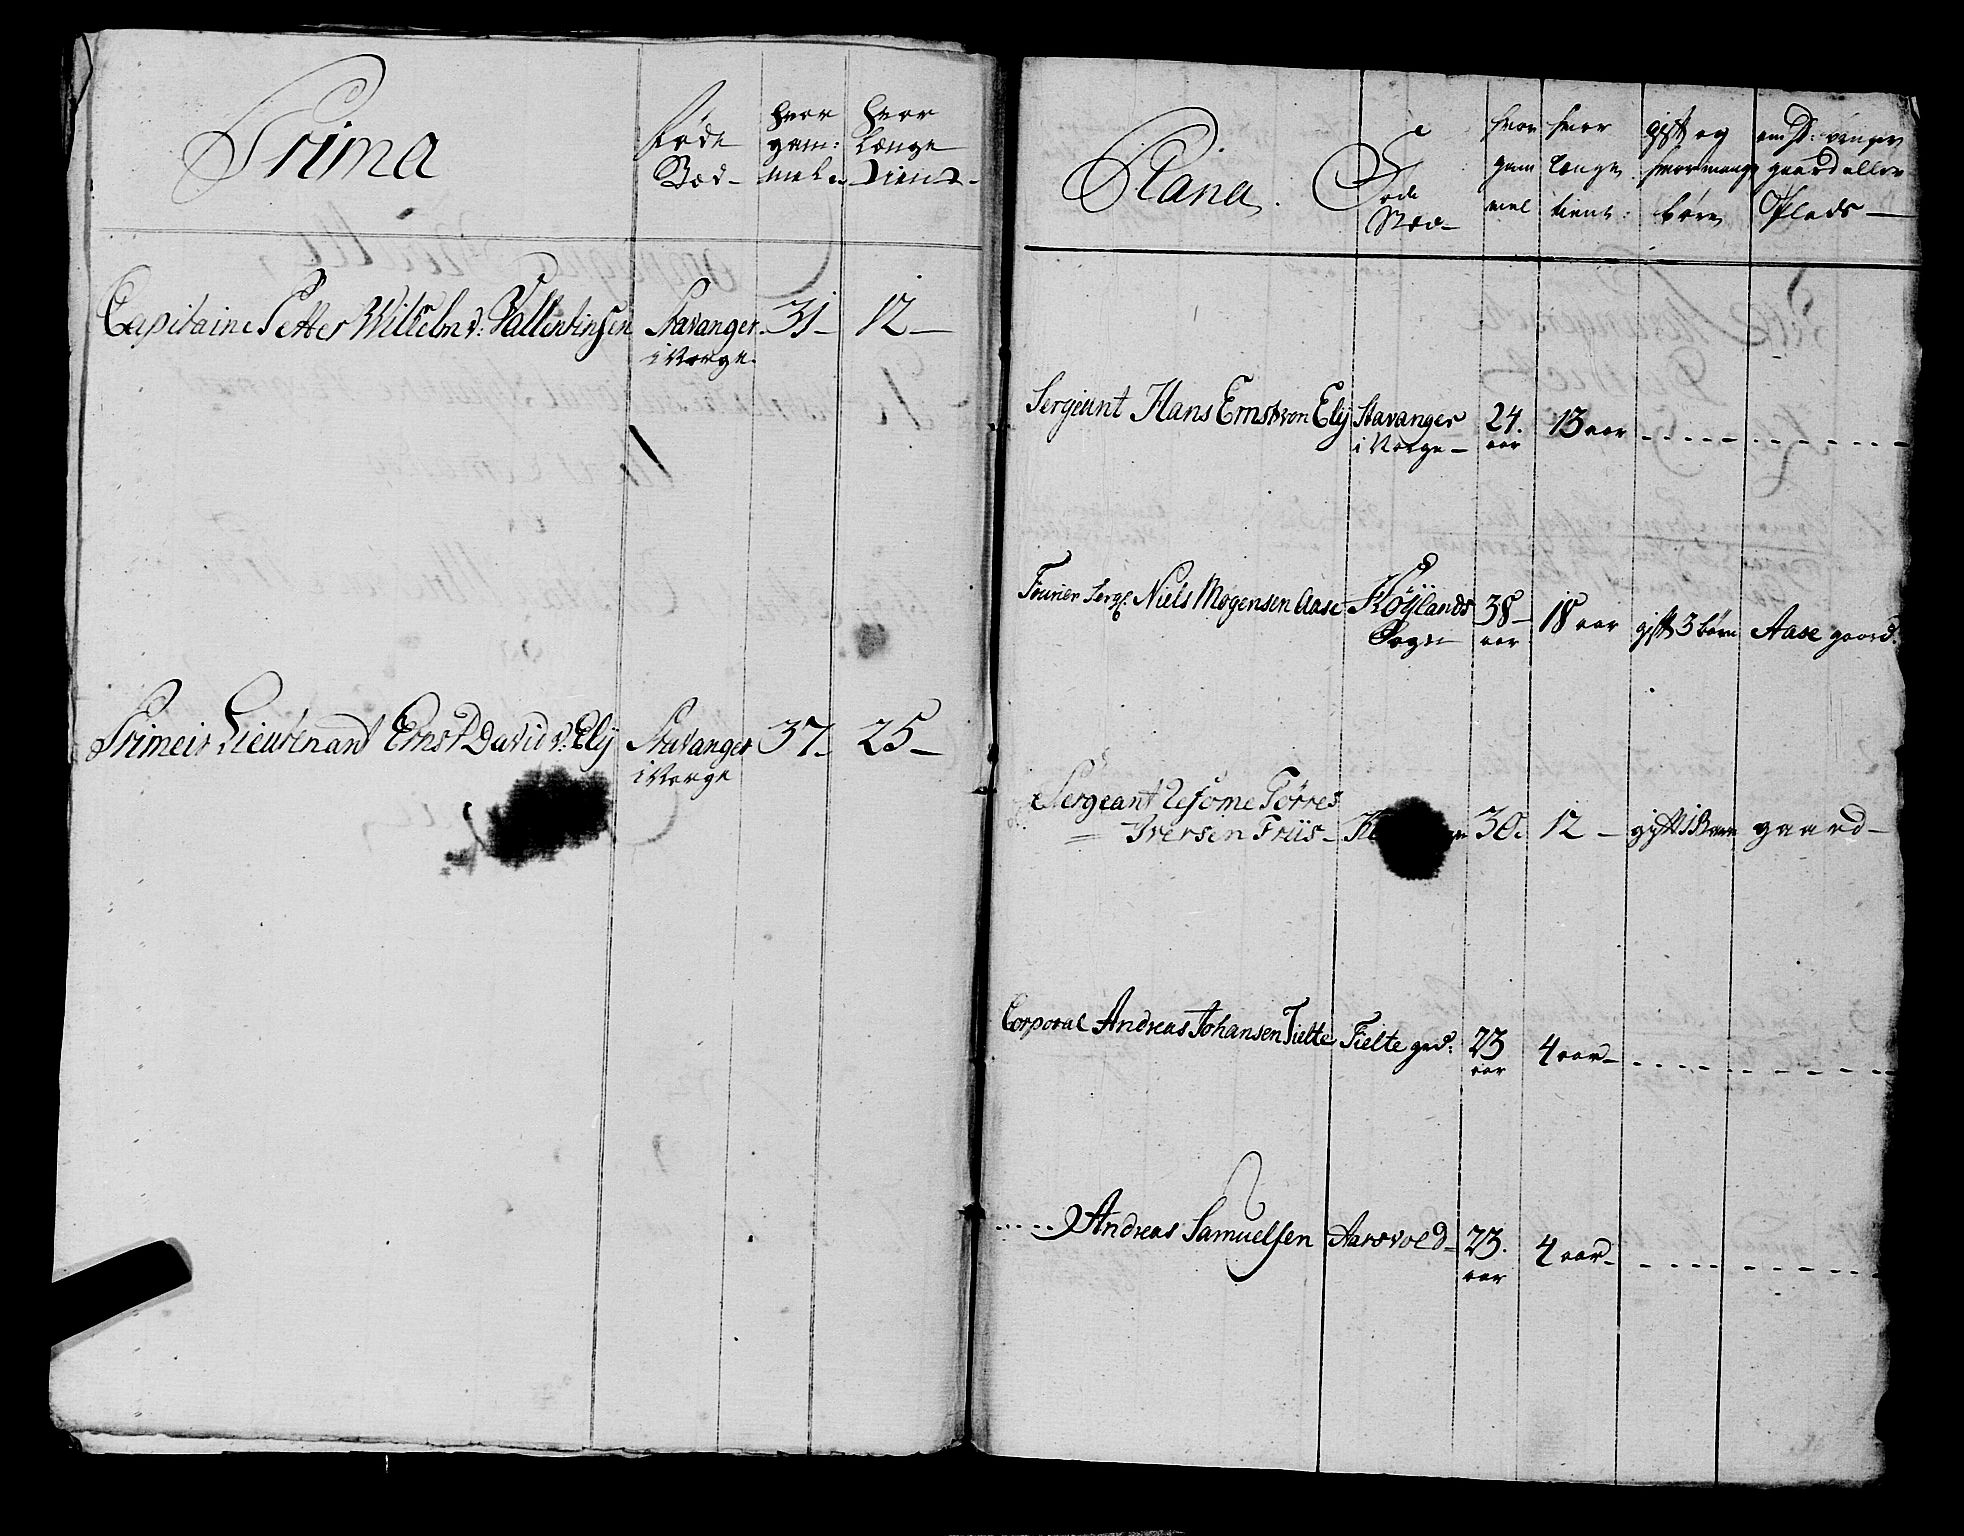 Prima
føde
Stæd-
hvor
gam:
mel-
hvor
Længe
Tient-
Capitaine Petter Wilhelm v: Vallentinsen Stavanger 31- 12-
i Norge.
Primeir Lieutenant Ernst David v: Ely Stavanger 37- 25-
i Norge
Plana
Føde
Stæd-
hvor
gam
mel
hvor
længe
tient:
gift og
hvor mange
børn
gaard eller
Plads-
Sergeant Hans Ernst von Ely Stavanger 24. 13 aar
i Norge- aar
Fourier Serg: Niels Mogensen Aase Høÿlands 38- 18 aar gift 3 børn Aase gaard.
Sogn aar
Sergeant Tørres
Iversen Friis- 30. 12- gift 1 Barn gaard-
Corporal Andreas Johansen Tielte Tielte grd: 23 4 aar-
aar
Andreas Samuelsen Aarsvold- 23. 4 aar-
aar